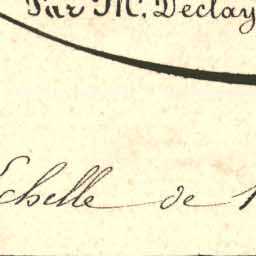 Par Mr. Declay
Echelle de 1